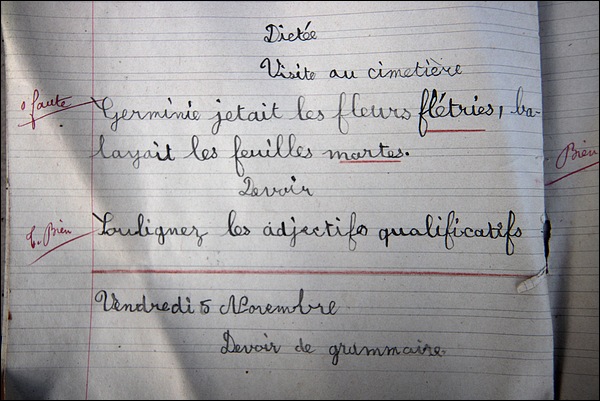 Dictée
Visite au cimetière
0 faute
Germinie jetait les fleurs flétries, ba-
layait les feuilles mortes.
Bien
Devoir
t. Bien
Soulignez les adjectifs qualificatifs
Vendredi 5 Novembre
Devoir de grammaire